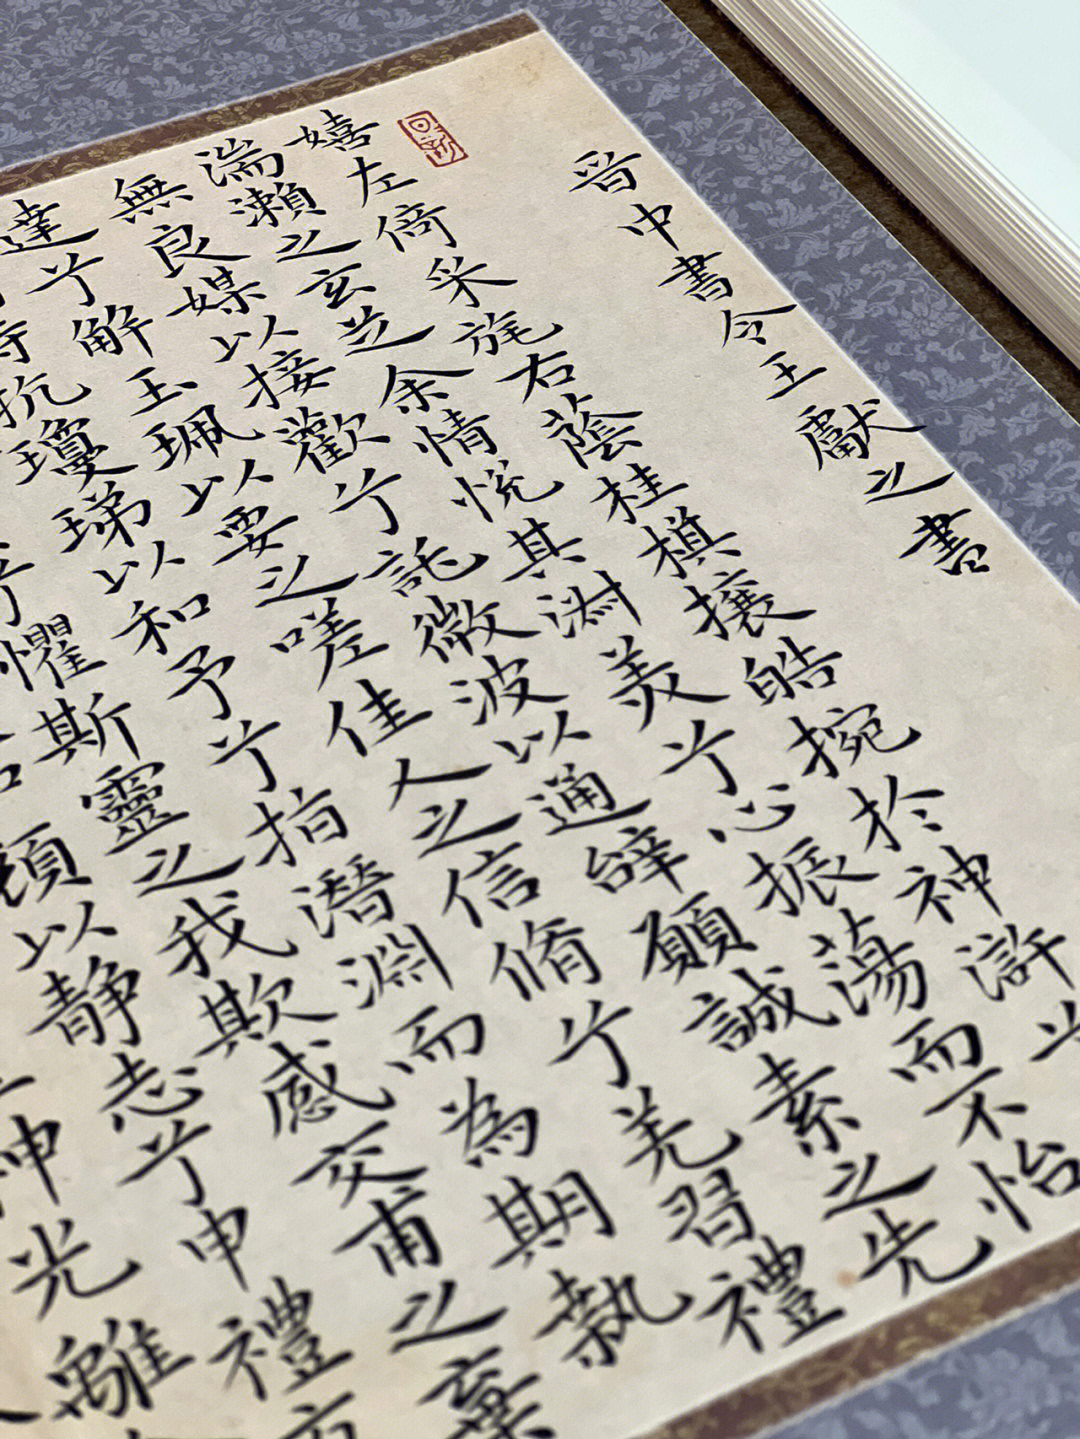 晉中書令王獻之書
嬉左倚采旄右蔭桂棋攘皓捥於神滸兮
湍瀨之玄芝余情悅其淑美兮心振蕩而不怡
無良媒以接歡兮託微波以通辭願誠素之先
達兮解玉珮以要之嗟佳人之信脩兮羌習禮
詩抗瓊珶以和予兮指潛淵而為期執
兮懼斯靈之我欺感交甫之棄
顏以静志兮申禮
神光離